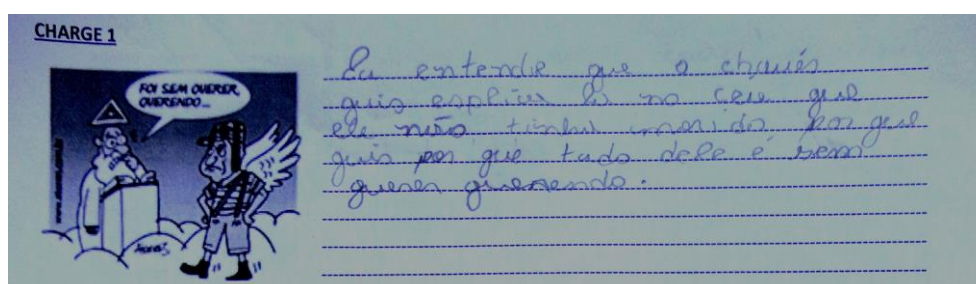 CHARGE 1
FOI SEM QUERER,
QUERENDO...
Eu entendie que o chavés
quis esplicar lá no ceu que
ele não tinha morrido por que
quis por que tudo dele é sem
querer querendo.